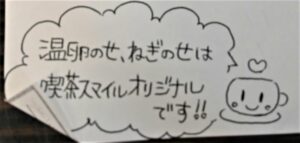 温卵のせ、ねぎのせは
喫茶スマイルオリジナル
です!!